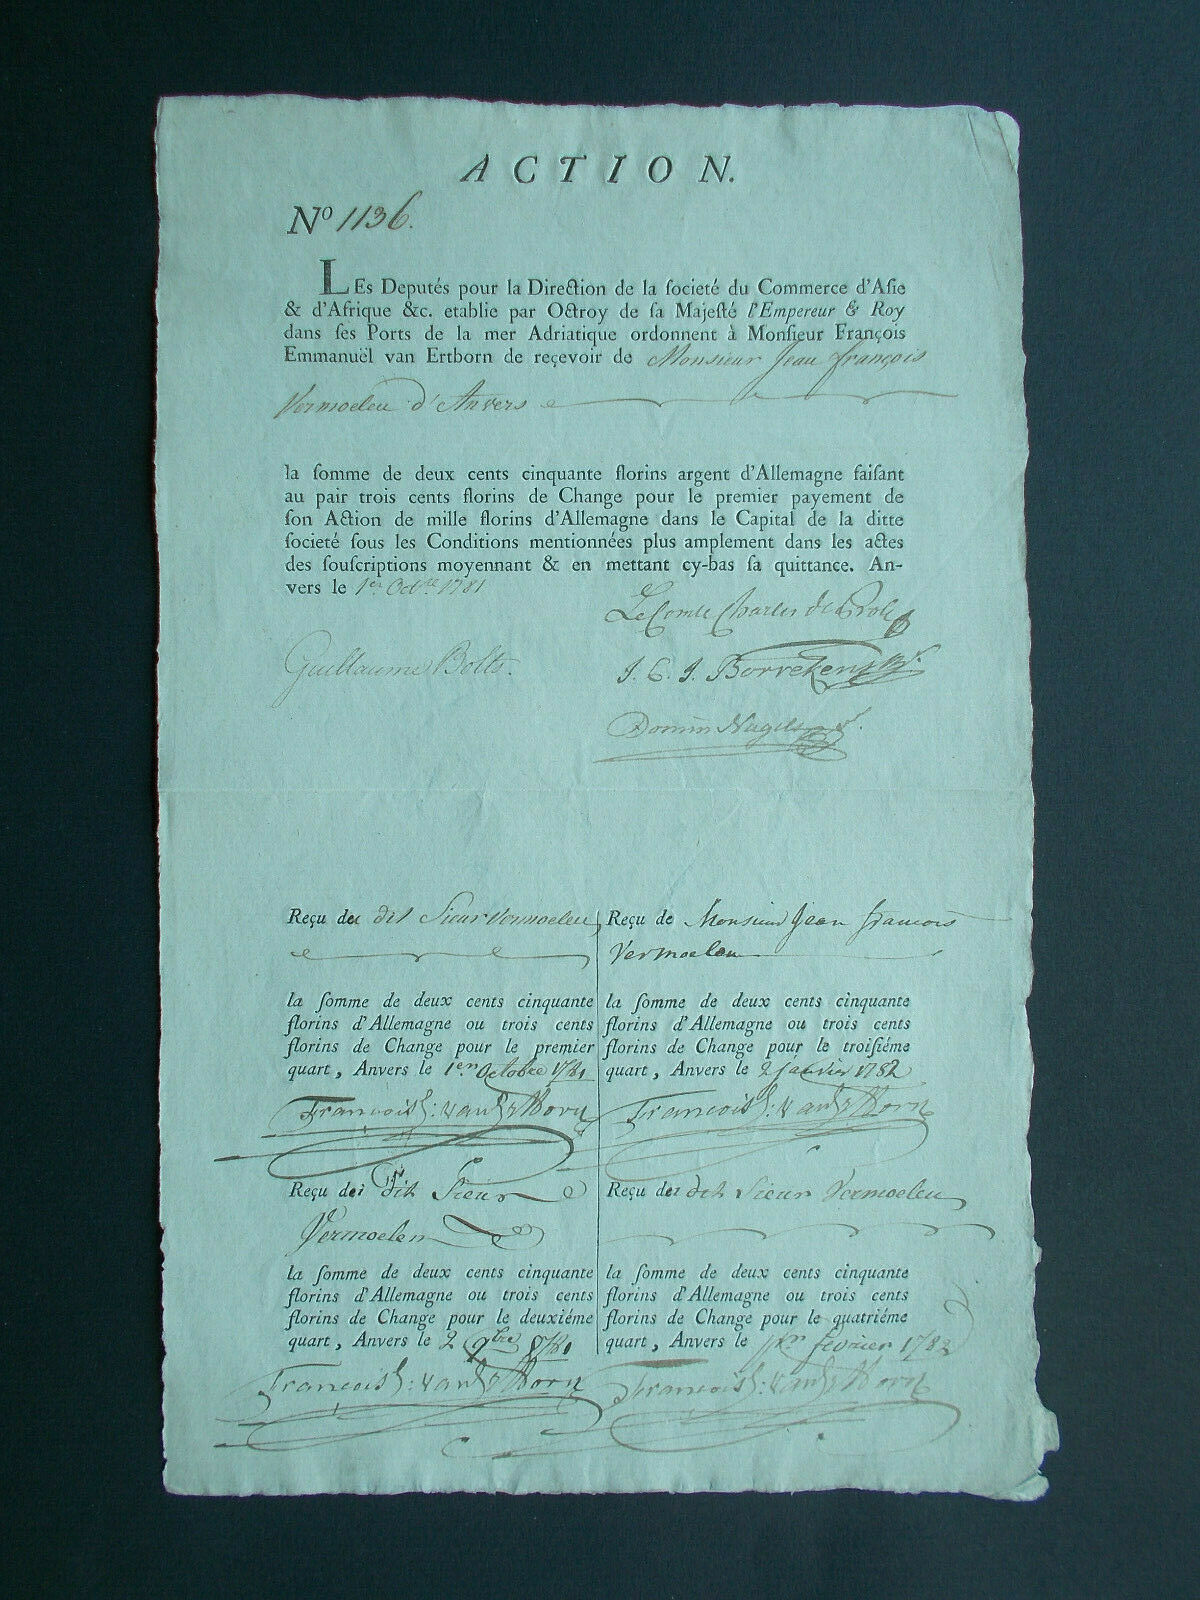 ACTION.
No 1136.
LEs Deputés pour la Direction de la societé du Commerce d'Aſie
& d'Afrique &c. etablie par Octroy de ſa Majeſté l'Empereur & Roy
dans ſes Ports de la mer Adriatique ordonnent à Monſieur François
Emmanuël van Ertborn de reçevoir de Monsieur Jean François
Vermoelen d'Anvers
la ſomme de deux cents cinquante florins argent d'Allemagne faiſant
au pair trois cents florins de Change pour le premier payement de
ſon Action de mille florins d'Allemagne dans le Capital de la ditte
societé ſous les Conditions mentionnées plus amplement dans les actes
des ſouſcriptions moyennant & en mettant cy-bas ſa quittance. An-
vers le 1er Octre 1781
Le Comte Charles de Proli
Guillaume Bolts.
J. C. J. Borrekens
Domin Nagels
Reçu du dit Sieur Vermoelen
la ſomme de deux cents cinquante
florins d'Allemagne ou trois cents
florins de Change pour le premier
quart, Anvers le 1er Octobre 1781
François E: van Ertborn
Reçu de Monsieur Jean François
Vermoelen
la ſomme de deux cents cinquante
florins d'Allemagne ou trois cents
florins de Change pour le troiſiéme
quart, Anvers le 2 Janvier 1782
François E: van Ertborn
Reçu du dit Sieur
Vermoelen
la ſomme de deux cents cinquante
florins d'Allemagne ou trois cents
florins de Change pour le deuxiéme
quart, Anvers le 2 9bre 1781
François E: van Ertborn
Reçu du dit Sieur Vermoelen
la ſomme de deux cents cinquante
florins d'Allemagne ou trois cents
florins de Change pour le quatriéme
quart, Anvers le 1er fevrier 1782
François E: van Ertborn